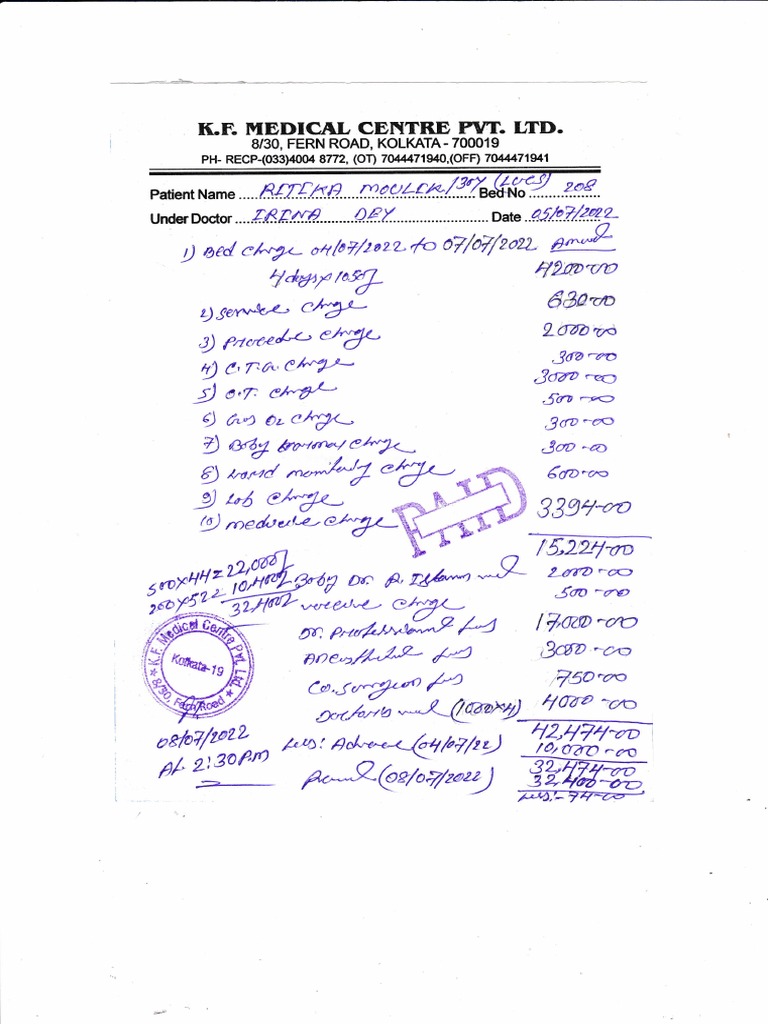 K.F. MEDICAL CENTRE PVT. LTD.
8/30, FERN ROAD, KOLKATA - 700019
PH- RECP-(033)4004 8772, (OT) 7044471940,(OFF) 7044471941
Patient Name RITIKA MOULIK/30Y (LUCS) Bed No 208
Under Doctor IRINA DEY Date 05/07/2022
1) Bed Chrge 04/07/2022 to 07/07/2022 Amount
4days x 1050/ 4200-00
2) Service Chrge 630-00
3) Procedre Chrge 2000-00
4) C.T.G. Chrge 300-00
5) O.T. Chrge 3000-00
6) Gas O2 Chrge 500-00
7) Baby Chrge 300-00
8) Chrge 300-00
9) Lab Chrge 600-00
10) Medicine Chrge 3394-00
PAID
15,224-00
500x44=22,000/
Baby Dr. 2000-00
200x52= 10,400/
Chrge 500-00
32,400/
Dr. Professional fees 17,000-00
Anesthetist fees 3000-00
Co. Surgeon fees 750-00
Doctoris (1000x4) 4000-00
K.F. Medical Centre Pvt. Ltd.
Kolkata-19
8/30, Fern Road
42,474-00
08/07/2022
Less: Advance (04/07/22) 10,000-00
At 2:30 P.M
32,474-00
(08/07/2022) 32,400-00
Less:- 74-00